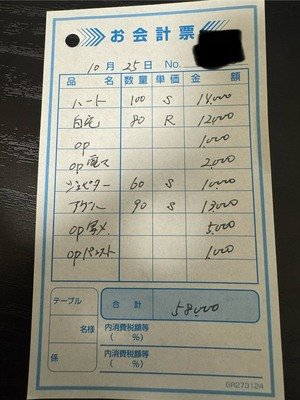 お会計票
10月25日 No.
品名 数量 単価 金額
ハート 100 S 14,000
自宅 80 R 12,000
op 1,000
op 電マ 2,000
ジュピター 60 S 10,000
90 S 13,000
op 5,000
op パンスト 1,000
テーブル 合計 58,000
名様 内消費税額等
( %)
係 内消費税額等
( %)
GR273124